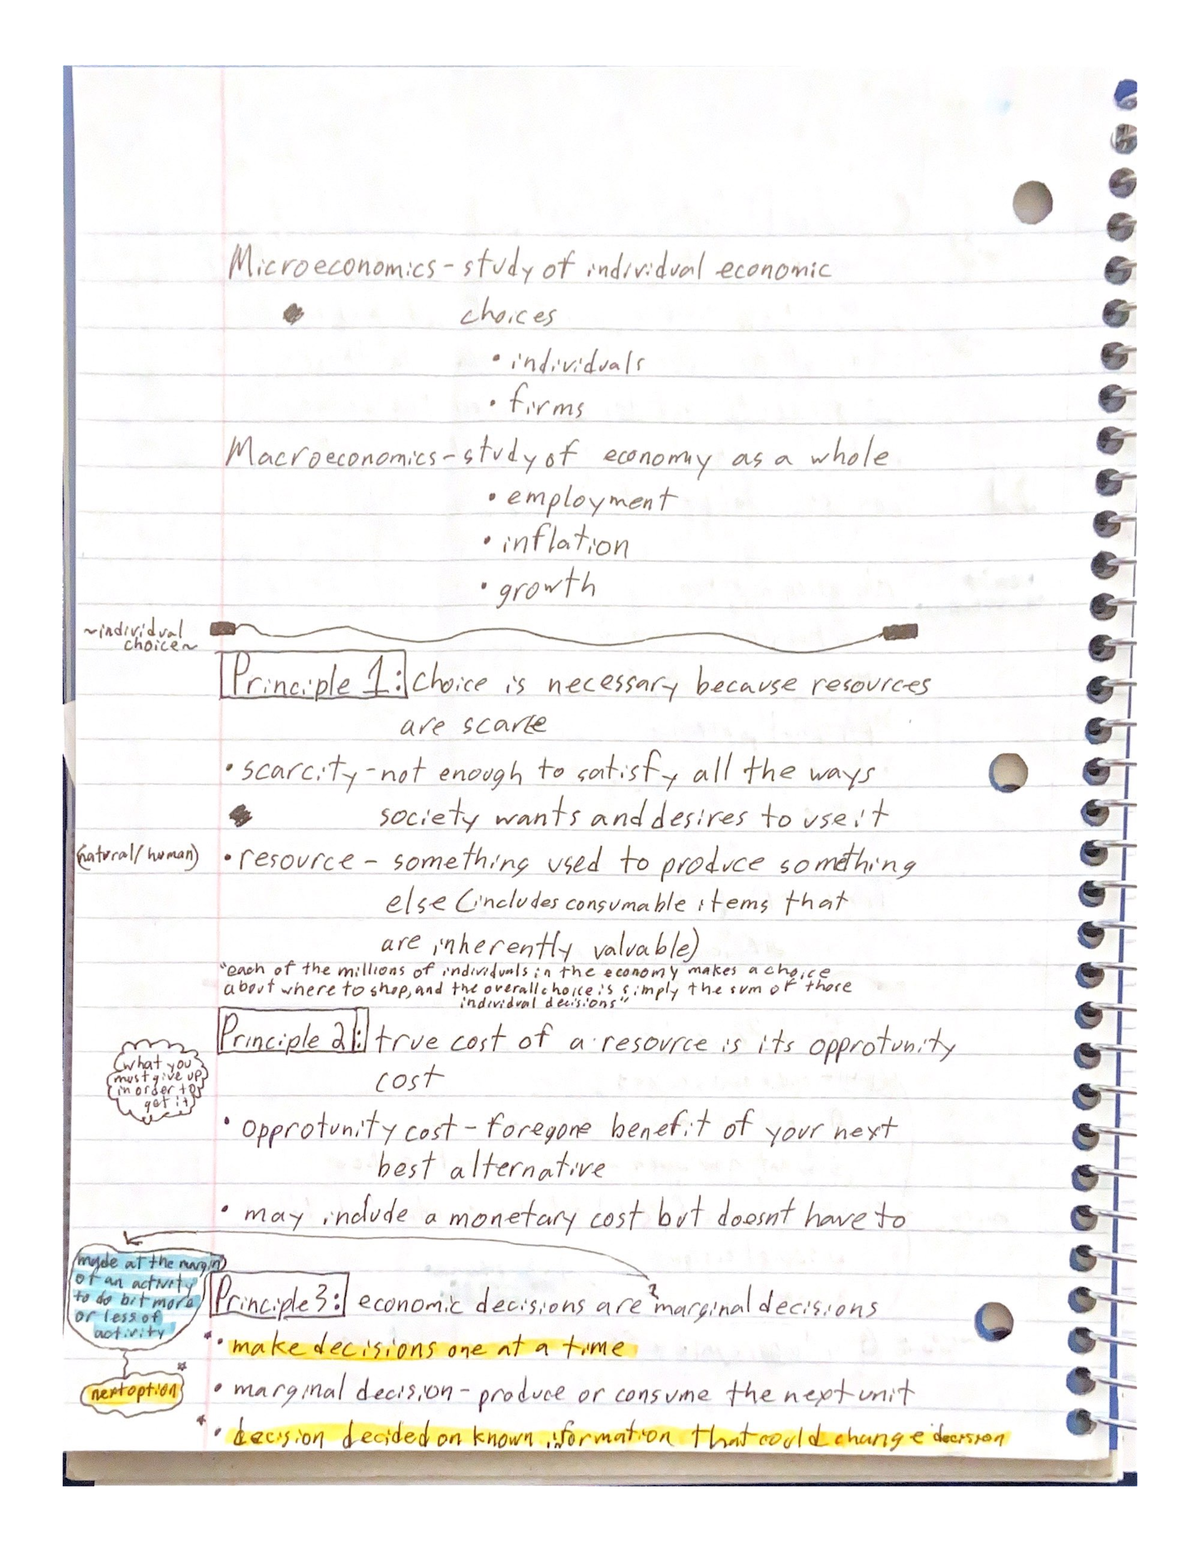 Microeconomics - study of individual economic
choices
• individuals
• firms
Macroeconomics - study of economy as a whole
• employment
• inflation
• growth
~individual
choice~
Principle 1: choice is necessary because resources
are scarce
• scarcity - not enough to satisfy all the ways
society wants and desires to use it
(natural/human)
• resource - something used to produce something
else (includes consumable items that
are inherently valuable)
"each of the millions of individuals in the economy makes a choice
about where to shop, and the overall choice is simply the sum of those
individual decisions"
Principle 2: true cost of a resource is its opprotunity
cost
what you
must give up
in order to
get it
• opprotunity cost - foregone benefit of your next
best alternative
• may include a monetary cost but doesnt have to
made at the margin
of an activity
to do bit more
or less of
activity
Principle 3: economic decisions are marginal decisions
* • make decisions one at a time
next option *
• marginal decision - produce or consume the next unit
* • decision decided on known information that could change decision